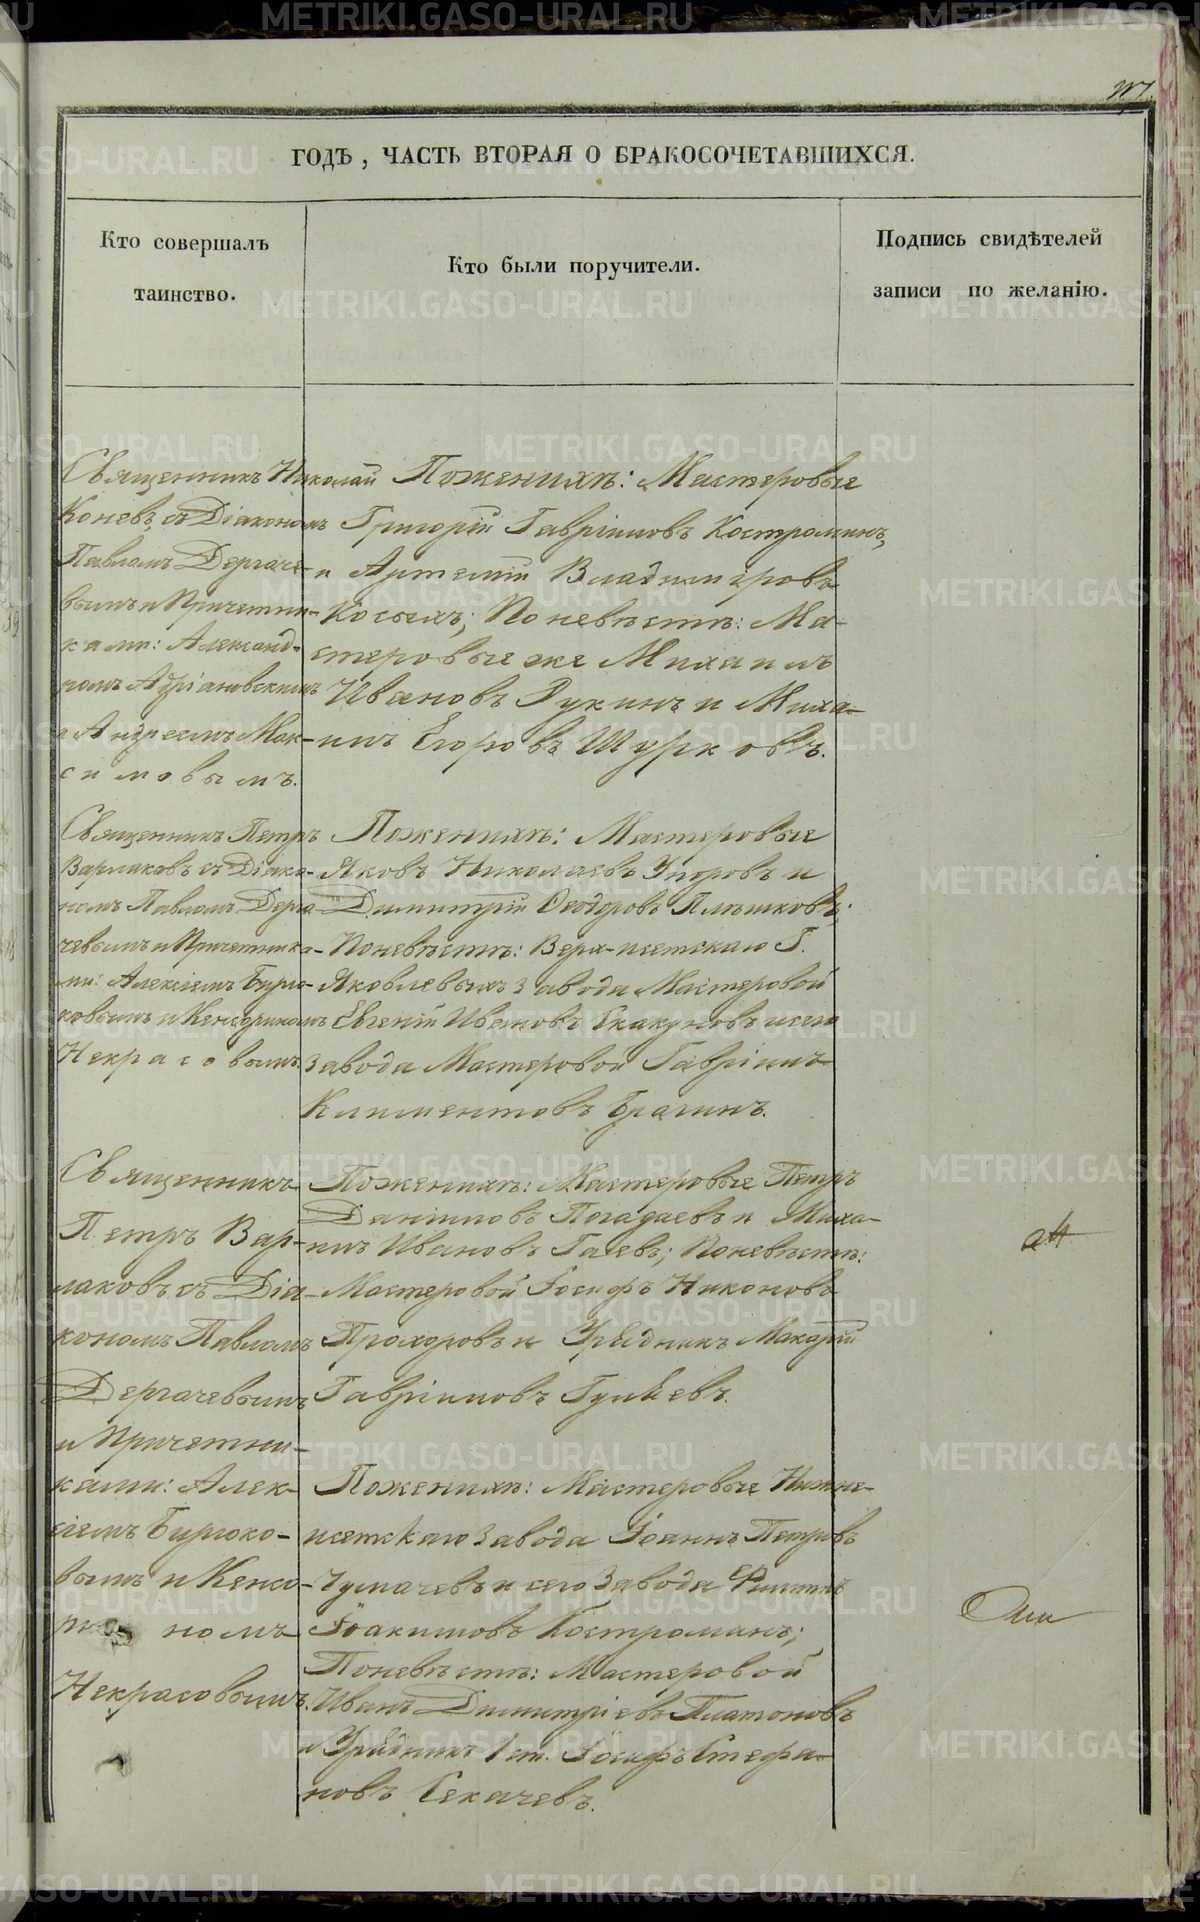 ГОДЪ, ЧАСТЬ ВТОРАЯ О БРАКОСОЧЕТАВШИХСЯ.
Кто совершалъ
таинство.
Кто были поручители.
Подпись свидѣтелей
записи по желанію.
Священникъ Николай
Коневъ, съ Діакономъ
Павломъ Дергаче-
вымъ и Причетни-
ками: Александ-
ромъ Адріановскимъ
и Андреемъ Мак-
симовымъ.
Пожениху: Мастеровые
Григорій Гавріиловъ Костроминъ,
и Артемій Владимировъ
Косыхъ; Поневѣстѣ: Ма-
стеровые же Михаилъ
Ивановъ Лукинъ и Миха-
илъ Егоровъ Шурковъ.
Священникъ Петръ
Варлаковъ съ Діако-
номъ Павломъ Дерга
чевымъ и Причетника-
ми: Алексіемъ Бирю-
ковымъ и Кенсориномъ
Некрасовымъ.
Пожениху: Мастеровые
Яковъ Николаевъ Упоровъ и
Димитрій Ѳеодоровъ Плѣшковъ;
Поневѣстѣ: Верх-исетскаго Г.
Яковлевыхъ завода Мастеровой
Евгеній Ивановъ Скакуновъ и сего
завода Мастеровой Гавріилъ
Климентовъ Брагинъ.
Священникъ
Петръ Вар-
лаковъ съ Діа-
кономъ Павломъ
Дергачевымъ
и Причетни-
ками: Алек-
сіемъ Бирюко-
вымъ и Кенсо-
номъ
Некрасовымъ.
Пожениху: Мастеровые Петръ
Даніиловъ Погадаевъ и Миха-
илъ Ивановъ Гаевъ; Поневѣстѣ:
Мастеровой Іосифъ Никоновъ
Прохоровъ и Урядникъ Макарій
Гавріиловъ Гуляевъ.
Пожениху: Мастеровые Нижне-
исетскаго завода Іоаннъ Петровъ
Чумачевъ и сего Завода Филиппъ
Іоакимовъ Костроминъ;
Поневѣстѣ: Мастеровой
Иванъ Димитріевъ Платоновъ
и Урядникъ 1 ст. Іосифъ Стефа-
новъ Секачевъ.
METRIKI.GASO-URAL.RU